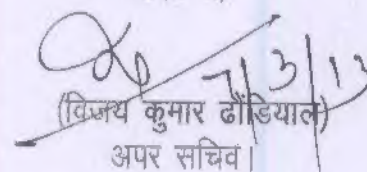 7/3/13
(विजय कुमार ढौंडियाल)
अपर सचिव।